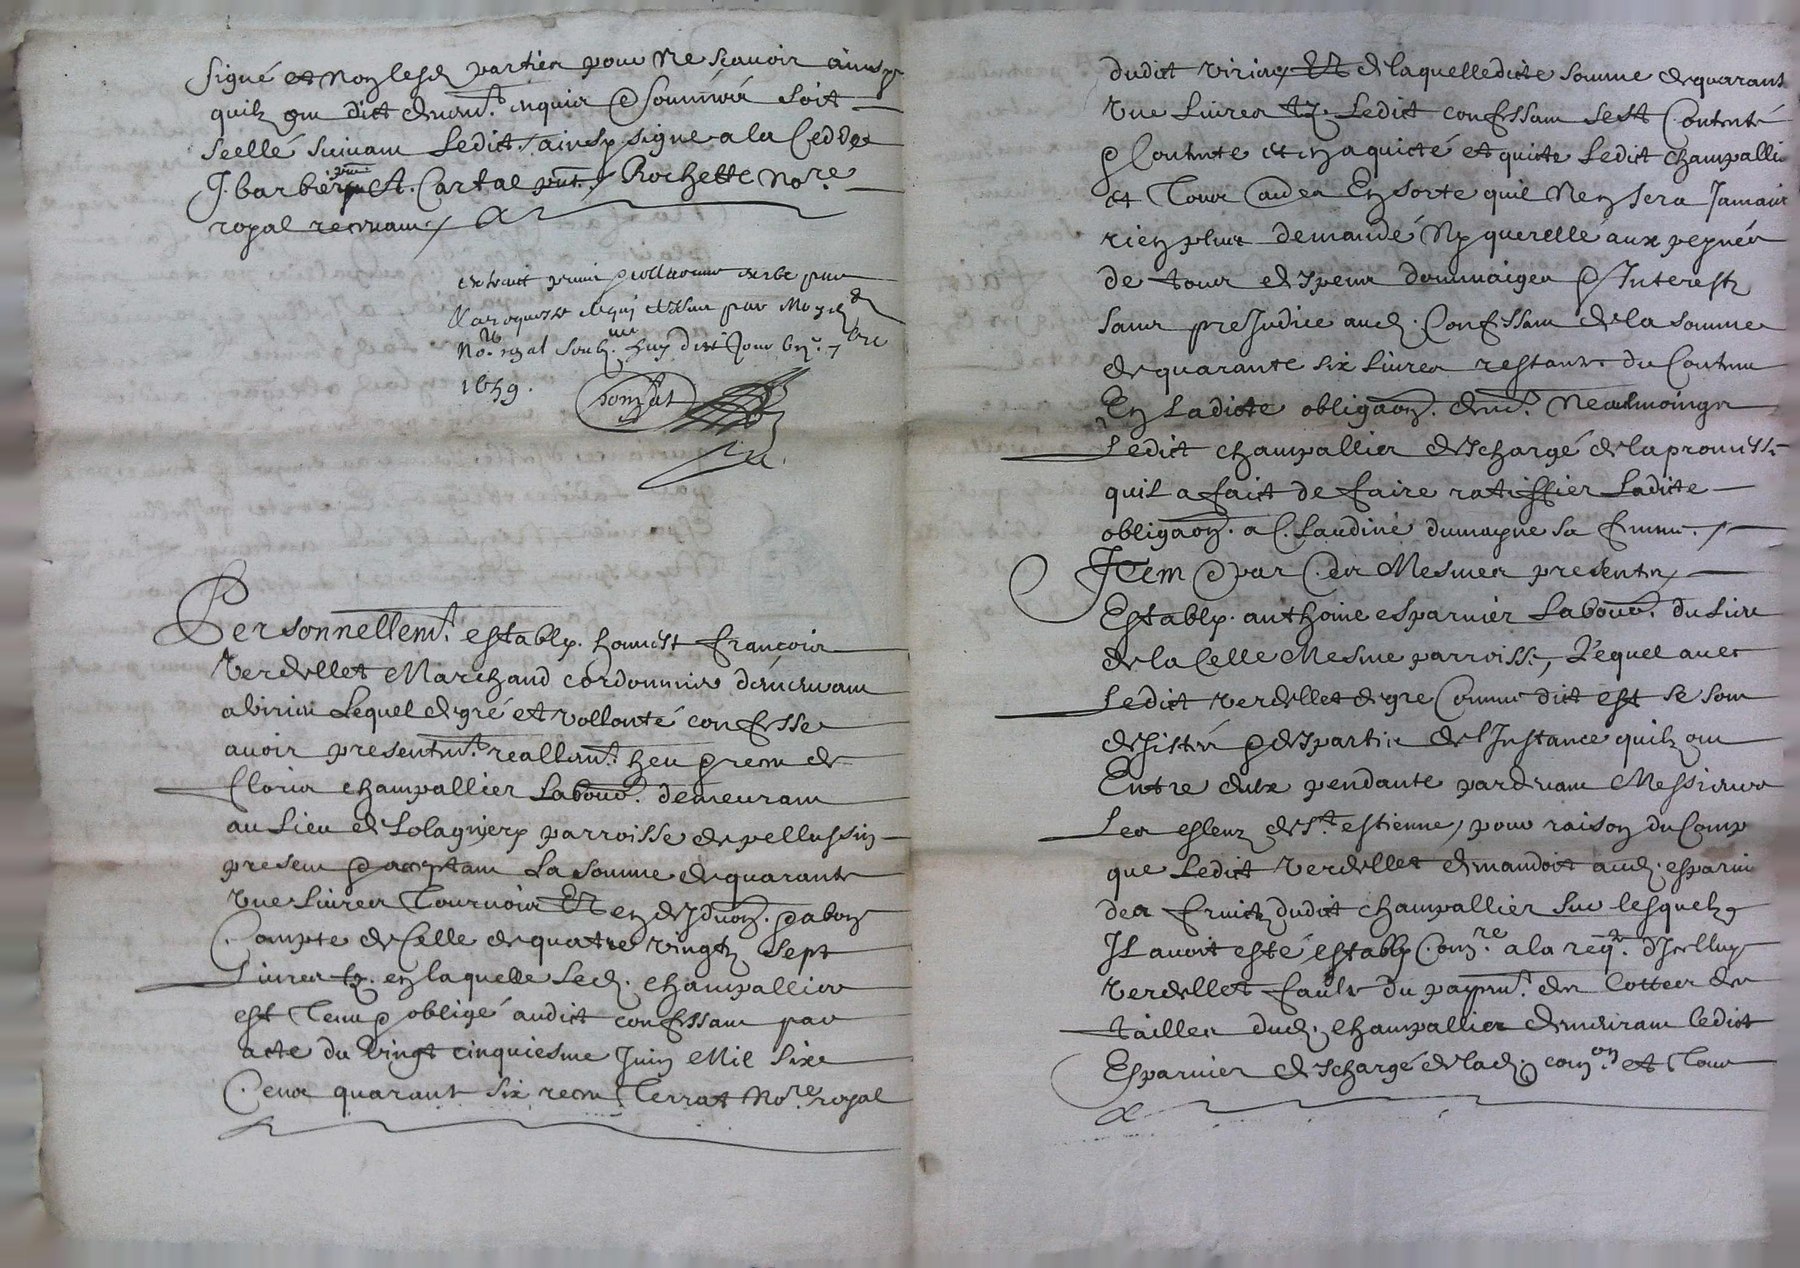 signé et non lesd parties pour ne scavoir ainsy
quilz ont dict deuemt. enquis & sommés soit
scellé suivant Ledict, ainsy signe a la Cedde
J. barbier pnt A. Cartal pnt. Rochette nore.
royal recevant
extraict prins & collationné
par moy
No.re royal soubz.né huy dict jour
1659.
Personnellemt. establyz. honnest françois
Verdellet Marchand cordonnier demeurant
a virieu Lequel de gré et vollonté confesse
avoir presentemt. reallemt. heu & receu de
Floris champallier Labour. demeurant
au Lieu de Lolagnyery parroisse de pellussin
present & acceptant La somme de quarante
une Livres Tournois Et en desduon. & a bon
Compte de Celle de quatre vingtz sept
Livres tz. en laquelle Led. champallier
est Tenu & obligé audict confessant par
acte du vingt cinquiesme Juin Mil Six
Cens quarant six receu Terrat Nore. royal
dudict virieu Et de laquelle dicte somme de quarant
une Livres tz. Ledict confessant sest Contenté
& Contente et en a quicté et quicte Ledict champallie
et Tous autres En sorte quil nen sera Jamais
rien plus demandé Ny querellé aux peynes
de tous despens dommaiges & Interestz
sans preJudice aud. Confessant de la somme
de quarante six Livres restants du Contenu
En Ladicte obligaon. demt. neaulmoings
Ledict champallier deschargé de la promess.
quil a faict de faire ratiffier Ladicte
obligaon. a Claudine dumayne sa femme.
Item & par Devant les Mesmes presents
Estably. anthoine esparvier Labour. du Lieu
de la Celle Mesme parroiss., Lequel avec
Ledict verdellet de gre Comme dict est se sont
desistés & despartis de lInstance quilz ont
Entre eulx pendante pardevant Messieurs
Les esleuz de St. estienne, pour raison du Comp
que Ledict verdellet demandoit aud. esparvi
des fruictz dudict champallier sur lesquelz
Il avoit esté establyCom.re a la reqte. dIcelluy
verdellet faulte du payemt. des Cottes des
tailles dud. champallier demeurant ledict
Esparvier deschargé de lad. com.on et Tous